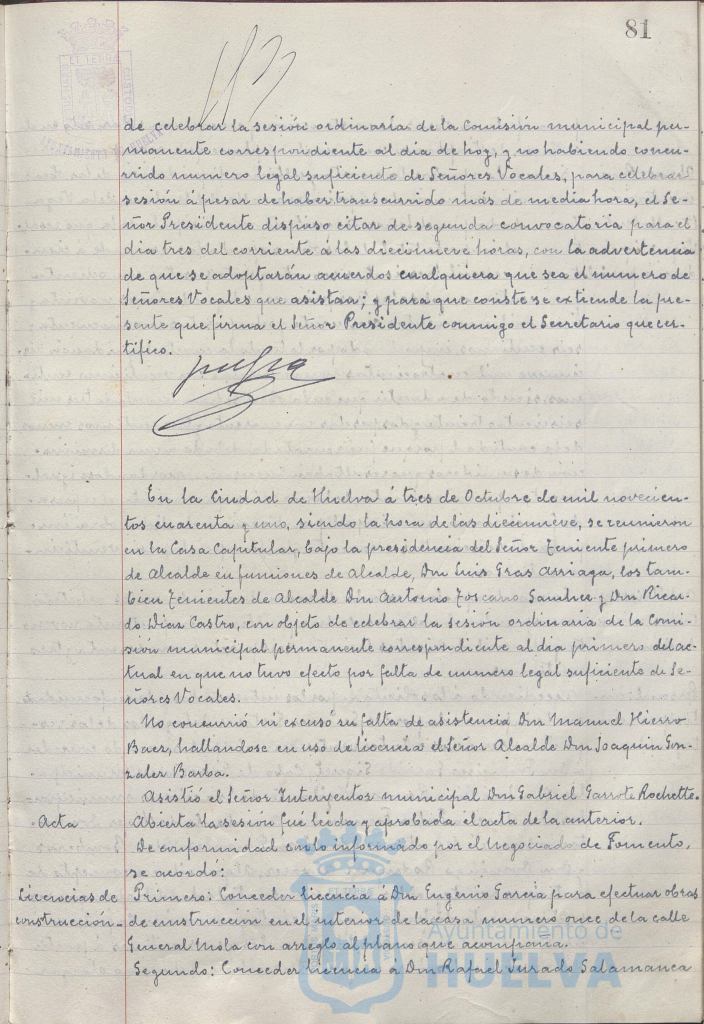 81
de celebrar la sesión ordinaria de la Comisión municipal per-
manente correspondiente al dia de hoy, y no habiendo concu-
rrido numero legal suficiente de Señores Vocales, para celebrar
sesión á pesar de haber transcurrido más de media hora, el Se-
ñor Presidente dispuso citar de segunda convocatoria para el
dia tres del corriente á las diecinueve horas, con la advertencia
de que se adoptarán acuerdos cualquiera que sea el numero de
Señores Vocales que asistan; y para que conste se extiende la pre-
sente que firma el Señor Presidente conmigo el Secretario que cer-
tifico.
En la Ciudad de Huelva á tres de Octubre de mil novecien-
tos cuarenta y uno, siendo la hora de las diecinueve, se reunieron
en la Casa Capitular, bajo la presidencia del Señor Teniente primero
de Alcalde en funciones de Alcalde, Don Luis Gras Arriaga, los tam-
bien Tenientes de Alcalde Don Antonio Toscano Sanchez y Don Ricar-
do Diaz Castro, con objeto de celebrar la sesión ordinaria de la Comi-
sión municipal permanente correspondiente al dia primero del ac-
tual en que no tuvo efecto por falta de numero legal suficiente de Se-
ñores Vocales.
No concurrió ni excusó su falta de asistencia Don Manuel Hierro
Baez, hallandose en uso de licencia el Señor Alcalde Don Joaquin Gon-
zalez Barba.
Asistió el Señor Interventor municipal Don Gabriel Garrote Rochette.
Acta
Abierta la sesión fué leida y aprobada el acta de la anterior.
De conformidad con lo informado por el Negociado de Fomento,
se acordó:
Licencias de
construcción.
Primero: Conceder licencia á Don Eugenio Garcia para efectuar obras
de construccion en el interior de la casa numero once de la calle
General Mola con arreglo al plano que acompaña.
Segundo: Conceder licencia á Don Rafael Jurado Salamanca
Ayuntamiento de
HUELVA